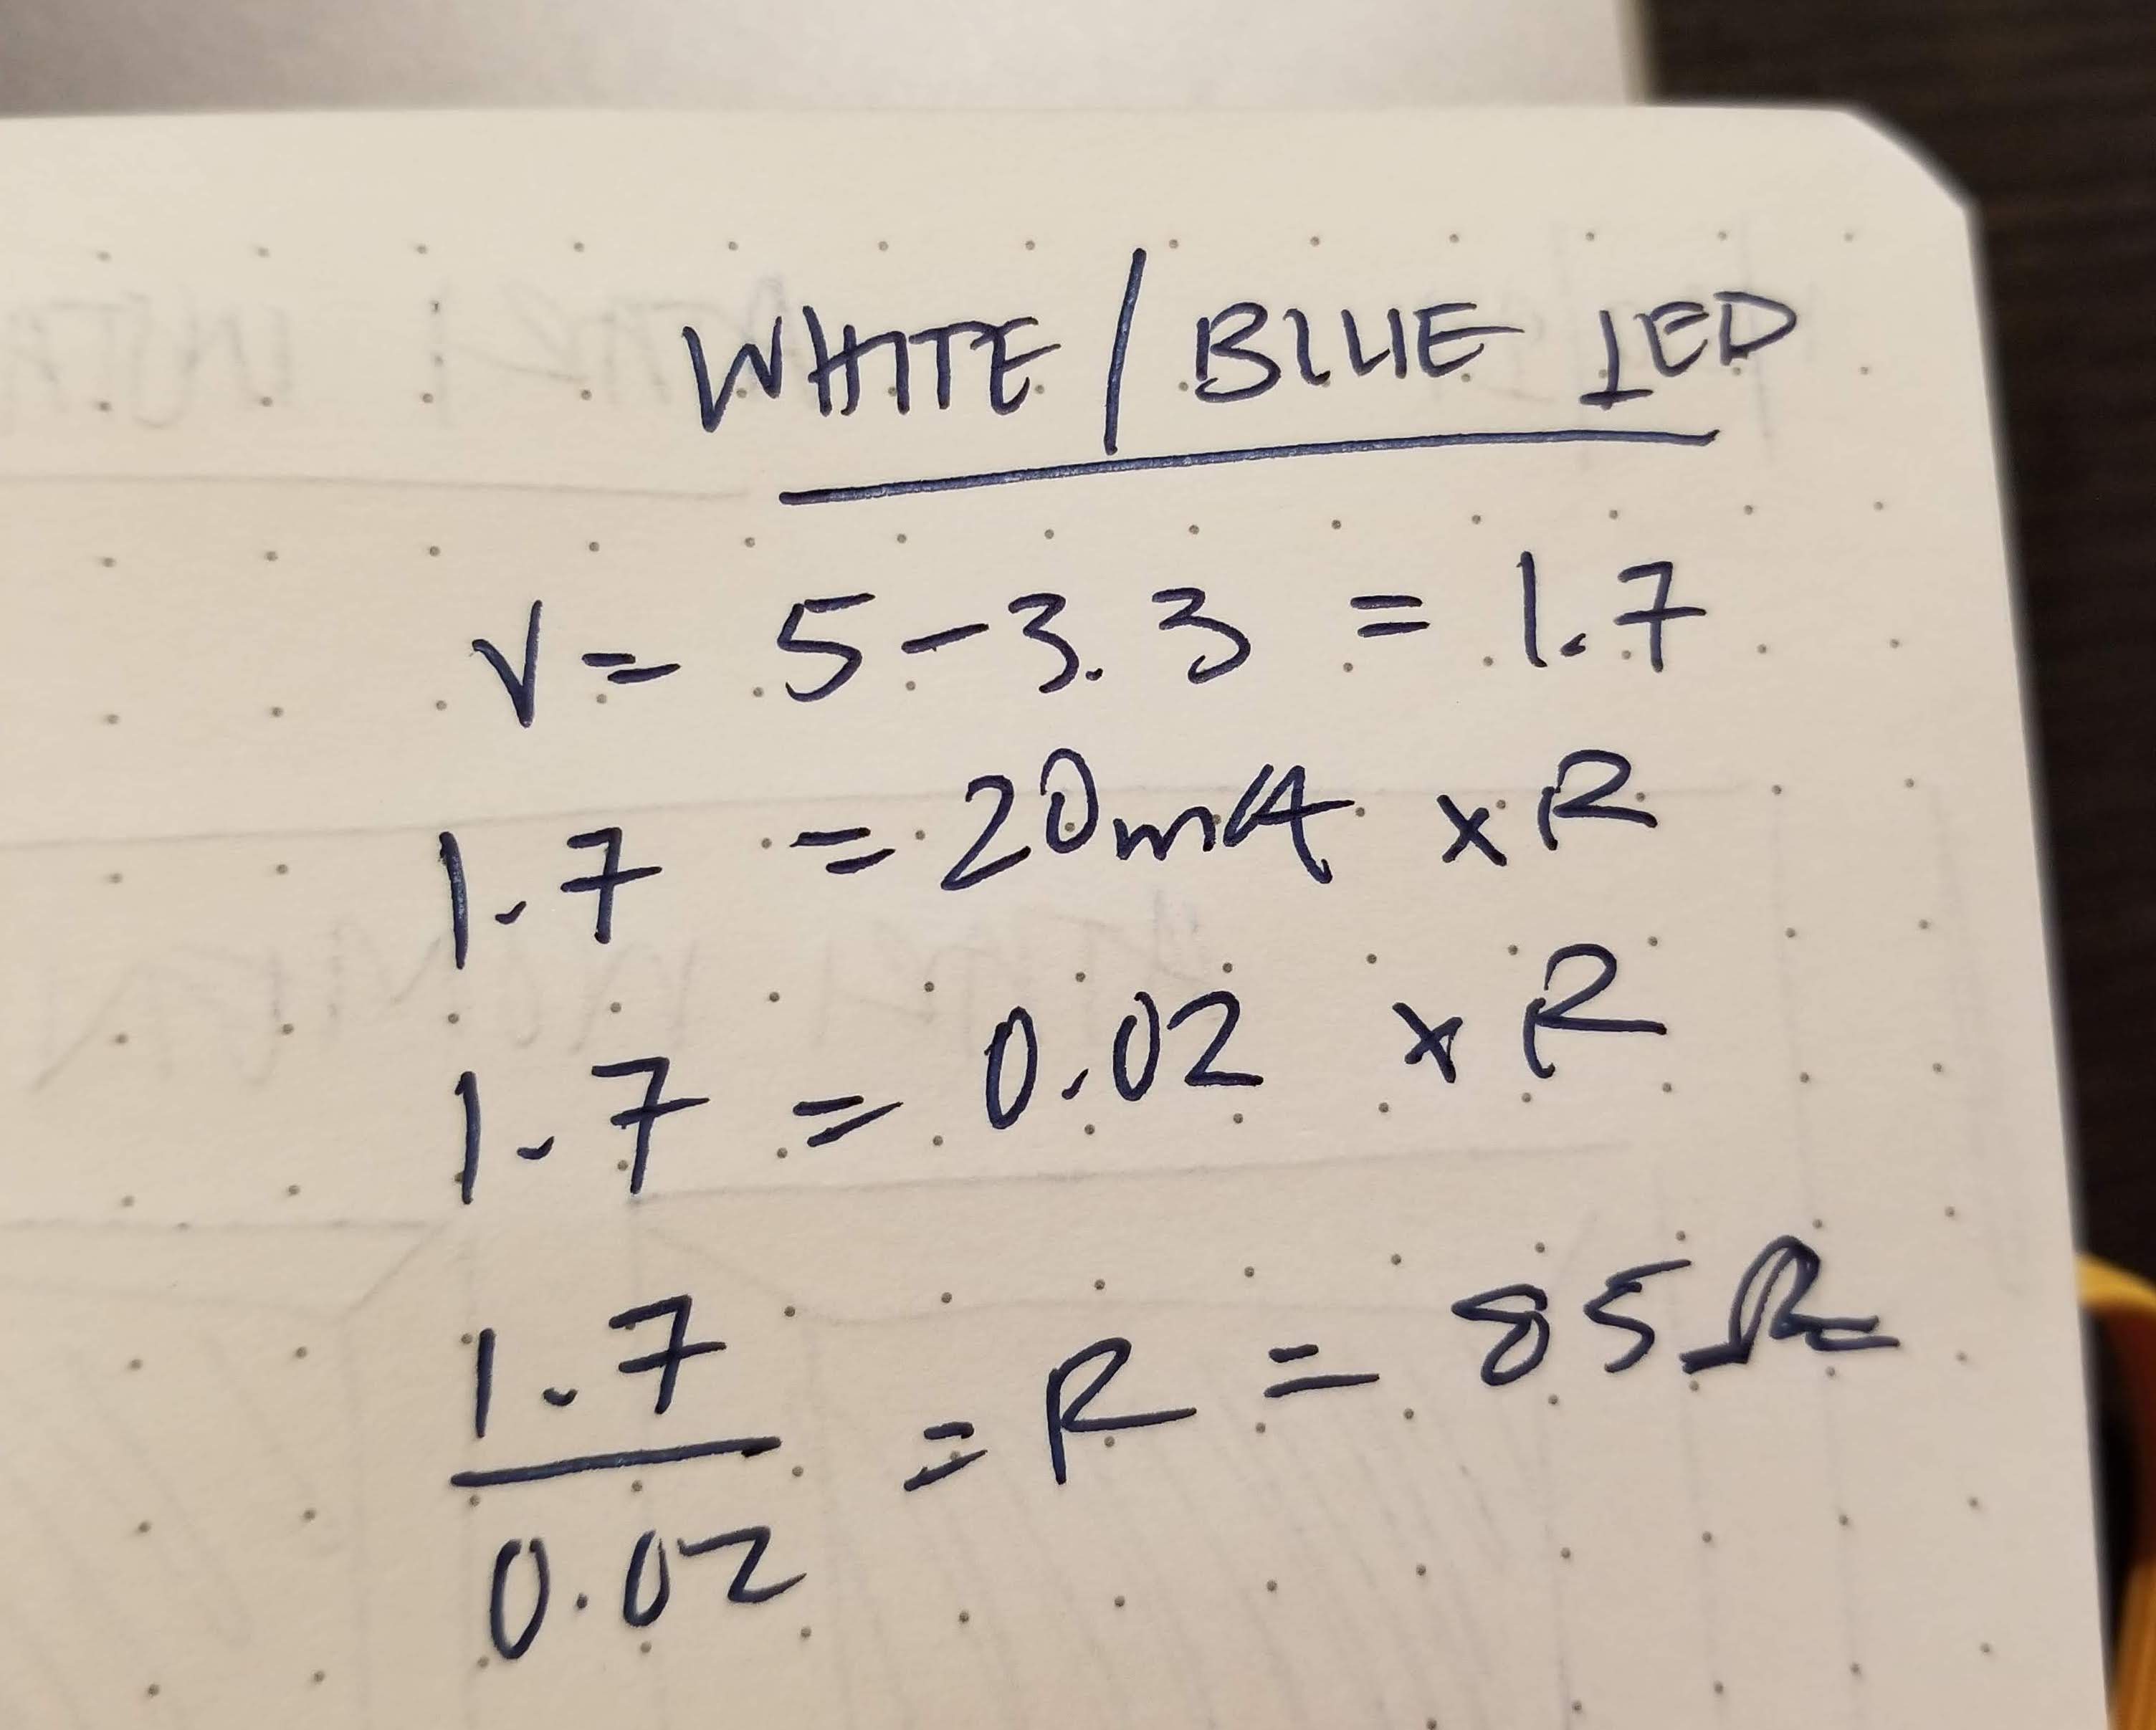 WHITE / BLUE LED
V = 5 - 3.3 = 1.7
1.7 = 20mA x R
1.7 = 0.02 x R
1.7
0.02 = R = 85Ω